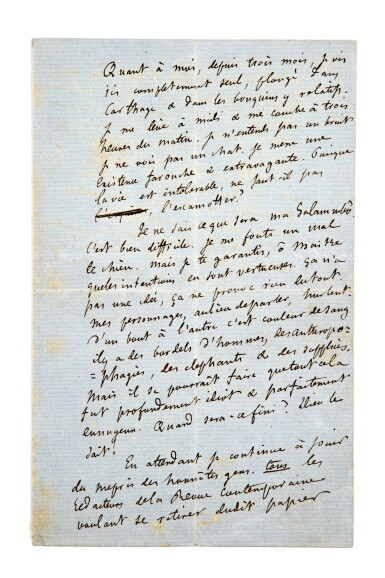 Quant à moi, depuis trois mois je vis
ici completement seul, plongé dans
Carthage & dans les bouquins y relatifs.
Je me lève à midi & me couche à trois
heures du matin. Je n'entends pas un bruit
je ne vois pas un chat. Je mene une
existence farouche & extravagante. Puisque
la vie est intolerable, ne faut-il pas
, l'escamotter?
Je ne sais ce que sera ma Salammbô.
C'est bien difficile. Je me fouts un mal
de chien. Mais je te garantis, ô Maître
que les intentions en sont vertueuses. Ça n'a
pas une idée, ça ne prouve rien du tout.
mes personnages, au lieu de parler, hurlent.
D'un bout à l'autre c'est couleur de sang
il y a des bordels d'hommes, des anthropo=
=phagies, des elephants & des supplices.
Mais il se pourrait faire que tout cela
fut profondement idiot & parfaitement
ennuyeux. Quand sera-ce fini? Dieu le
sait!
En attendant je continue à jouir
du mepris des honnêtes gens. tous les
redacteurs de la Revue Contemporaine
voulant se retirer dudit papier